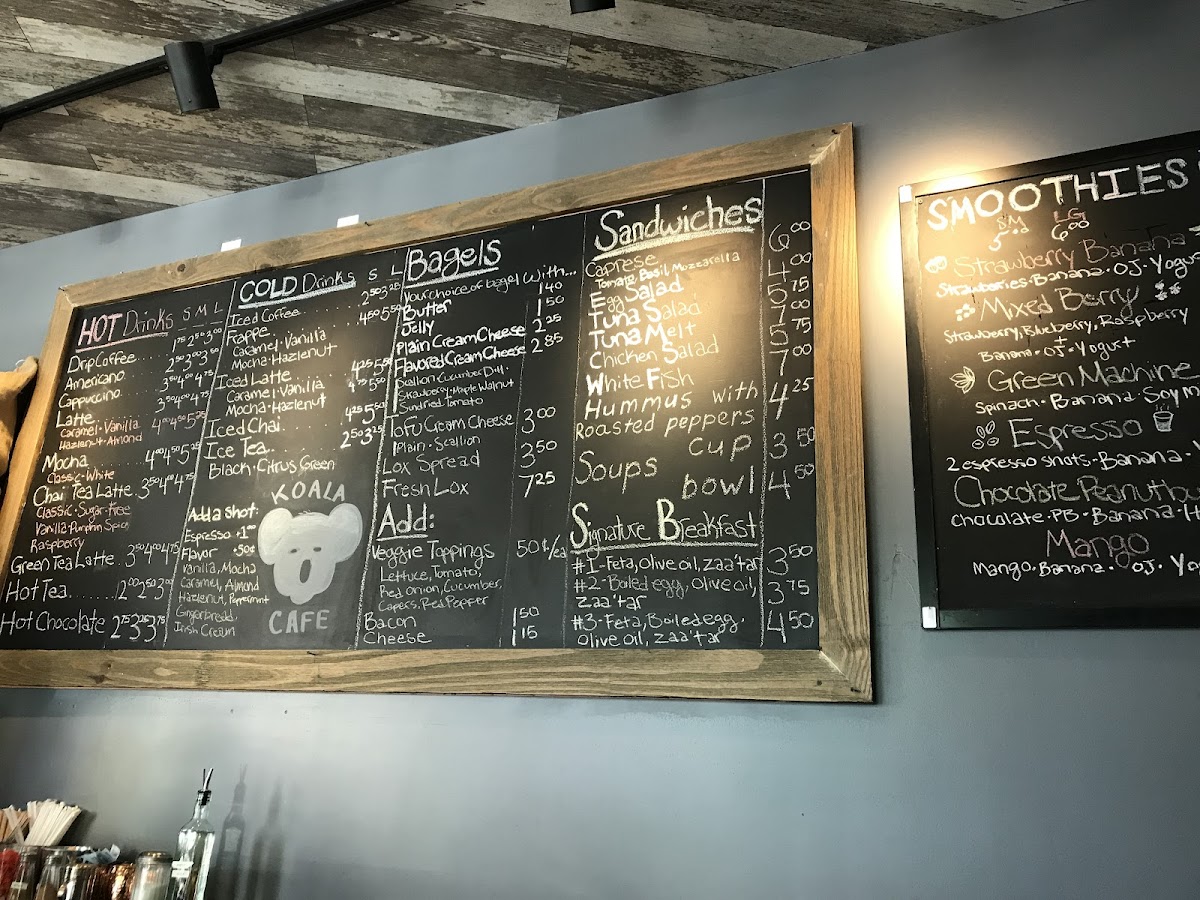 HOT Drinks S M L
Drip Coffee.... 1.75 2.50 3.00
Americano 2.50 2.50 3.50
Cappuccino 3.50 4.00 4.75
Latte 3.50 4.00 4.75
Caramel·Vanilla 4.00 4.50 5.25
Hazlenut·Almond
Mocha 4.00 4.50 5.25
Classic·White
Chai Tea Latte 3.50 4.00 4.75
Classic·Sugar-Free
Vanilla·Pumpkin Spice
Raspberry
Green Tea Latte 3.50 4.00 4.75
Hot Tea....... 2.00 2.50 3.00
Hot Chocolate 2.75 3.25 3.75
COLD Drinks S L
Iced Coffee 2.50 3.25
Frape 4.50 5.50
Caramel·Vanilla
Mocha·Hazlenut
Iced Latte 4.25 5.50
Caramel·Vanilla 4.75 5.50
Mocha·Hazlenut
Iced Chai 4.25 5.50
Ice Tea 2.50 3.25
Black·Citrus Green
Add a shot:
Espresso +1.00
Flavor +.50¢
Vanilla, Mocha
Caramel, Almond
Hazlenut, Peppermint
Gingerbread,
Irish Cream
KOALA
CAFE
Bagels
Your choice of bagel with...
Butter 1.40
Jelly 1.50
Plain Cream Cheese 2.25
Flavored Cream Cheese 2.85
Scallion·Cucumber Dill·
Strawberry·Maple Walnut
Sundried Tomato
Tofu Cream Cheese 3.00
Plain·Scallion
Lox Spread 3.50
Fresh Lox 7.25
Add:
Veggie Toppings 50¢/ea
Lettuce, Tomato,
Red onion, Cucumber,
Capers, Red Pepper
Bacon 1.50
Cheese 1.15
Sandwiches
Caprese 6.00
Tomato, Basil, Mozzarella
Egg Salad 4.00
Tuna Salad 5.75
Tuna Melt 7.00
Chicken Salad 5.75
White Fish 7.00
Hummus with 4.25
Roasted peppers
Soups cup 3.50
bowl 4.50
Signature Breakfast
#1-Feta, olive oil, zaa'tar 3.50
#2-Boiled egg, olive oil, 3.75
zaa'tar
#3-Feta, Boiled egg, 4.50
olive oil, zaa'tar
SMOOTHIES
SM LG
6.00
Strawberry Banana
Strawberries·Banana·OJ·Yogurt
Mixed Berry
Strawberry, Blueberry, Raspberry
Banana·OJ·Yogurt
Green Machine
Spinach·Banana·Soy
Espresso
2 espresso shots·Banana·
Chocolate Peanut
Chocolate·PB·Banana·
Mango
Mango·Banana·OJ·